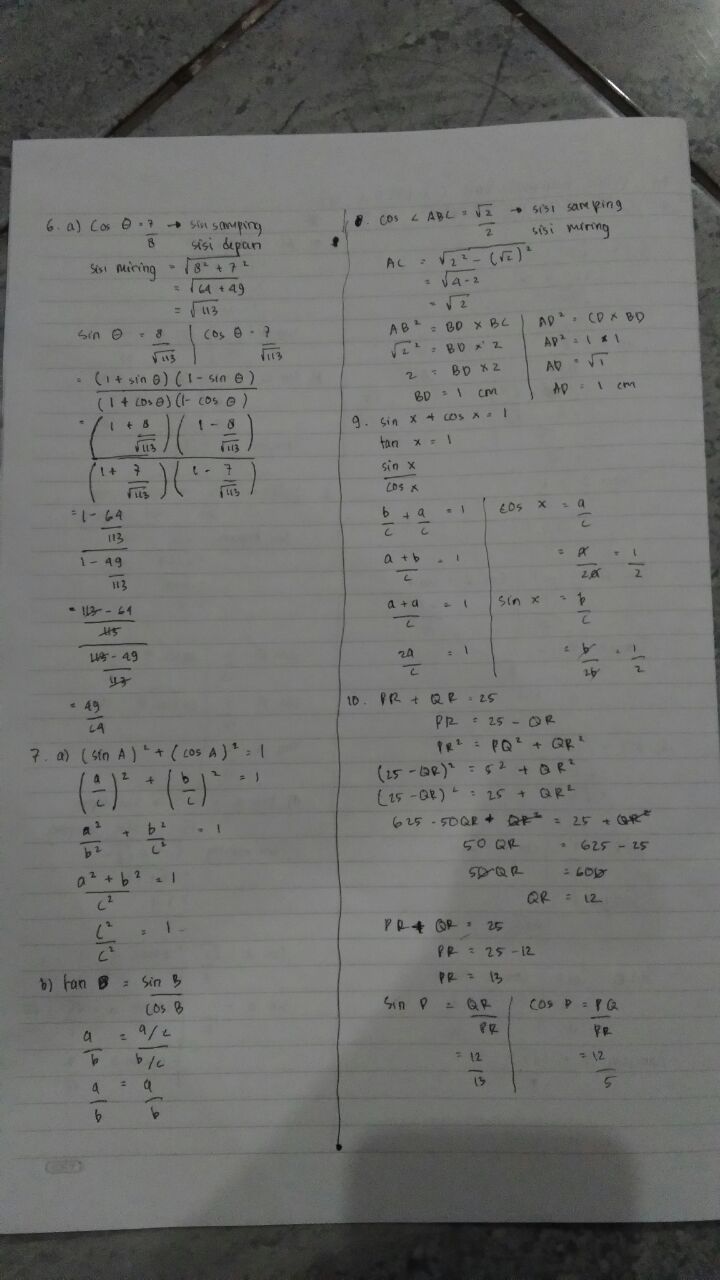 6. a) Cos θ = 7/8 → sisi samping / sisi depan
sisi miring = √8² + 7²
= √64 + 49
= √113
sin θ = 8/√113 | cos θ = 7/√113
= (1 + sin θ) (1 - sin θ) / (1 + cos θ) (1 - cos θ)
= (1 + 8/√113) (1 - 8/√113) / (1 + 7/√113) (1 - 7/√113)
= 1 - 64/113 / 1 - 49/113
= 113 - 64/113 / 113 - 49/113
= 49/64
7. a) (sin A)² + (cos A)² = 1
(a/c)² + (b/c)² = 1
a²/b² + b²/c² = 1
a² + b²/c² = 1
c²/c² = 1
b) tan B = sin B / cos B
a/b = a/c / b/c
a/b = a/b
8. cos < ABC = √2/2 → sisi samping / sisi miring
AC = √2² - (√2)²
= √4-2
= √2
AB² = BD × BC | AD² = CD × BD
√2² = BD × 2 | AD² = 1 × 1
2 = BD × 2 | AD = √1
BD = 1 cm | AD = 1 cm
9. sin x + cos x = 1
tan x = 1
sin x / cos x
b/c + a/c = 1 | cos x = a/c
a + b/c = 1 | = a/2a = 1/2
a + a/c = 1 | sin x = b/c
2a/c = 1 | = b/2b = 1/2
10. PR + QR = 25
PR = 25 - QR
PR² = PQ² + QR²
(25 - QR)² = 5² + QR²
(25 - QR)² = 25 + QR²
625 - 50QR + QR² = 25 + QR²
50 QR = 625 - 25
50 QR = 600
QR = 12
PR + QR = 25
PR = 25 - 12
PR = 13
Sin P = QR/PR | Cos P = PQ/PR
= 12/13 | = 12/5